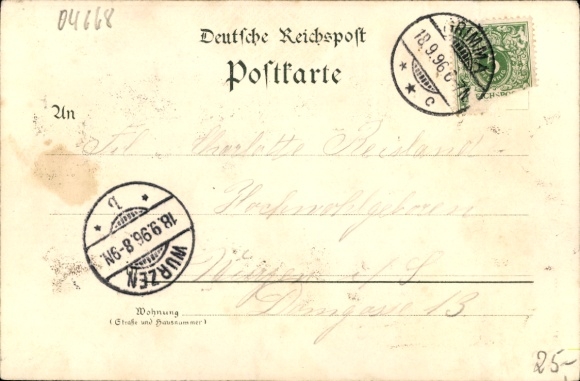 04668
Deutsche Reichspost
Postkarte
GRIMMA
18.9.96. 6-7N.
c
An
Frl. Charlotte Reisland
Hochwohlgeboren
Wurzen i/S
Domgasse 13.
b
18.9.96. 8-9N.
WURZEN
Wohnung
(Straße und Hausnummer)
25,-